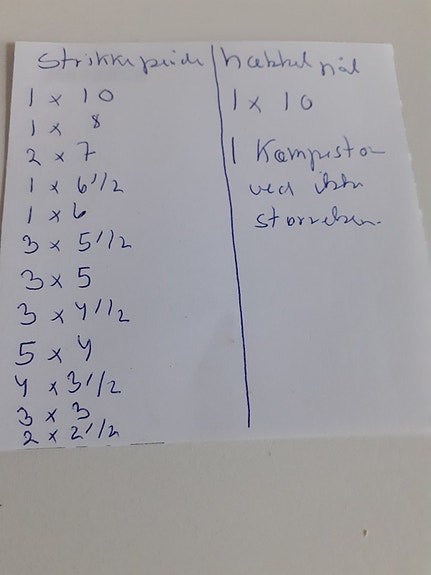 Strikkepinde
1 x 10
1 x 8
2 x 7
1 x 6 1/2
1 x 6
3 x 5 1/2
3 x 5
3 x 4 1/2
5 x 4
4 x 3 1/2
3 x 3
2 x 2 1/2
hæklenål
1 x 10
1 Kæmpestor
ved ikke
størrelsen.